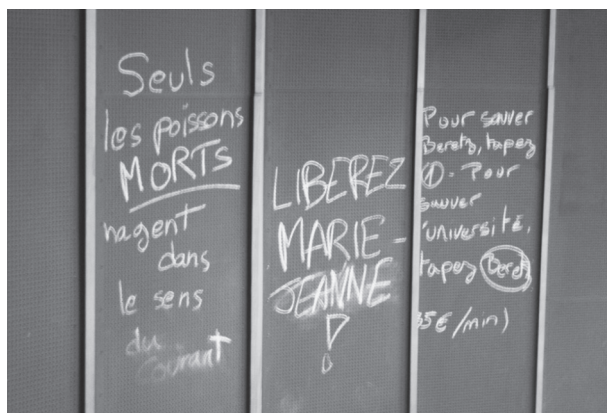 Seuls
les poissons
MORTS
nagent
dans
le sens
du
courant
LIBEREZ
MARIE-
JEANNE
!
Pour sauver
Beretz, tapez
① - Pour
sauver
l'université,
tapez Beretz
35€/min)